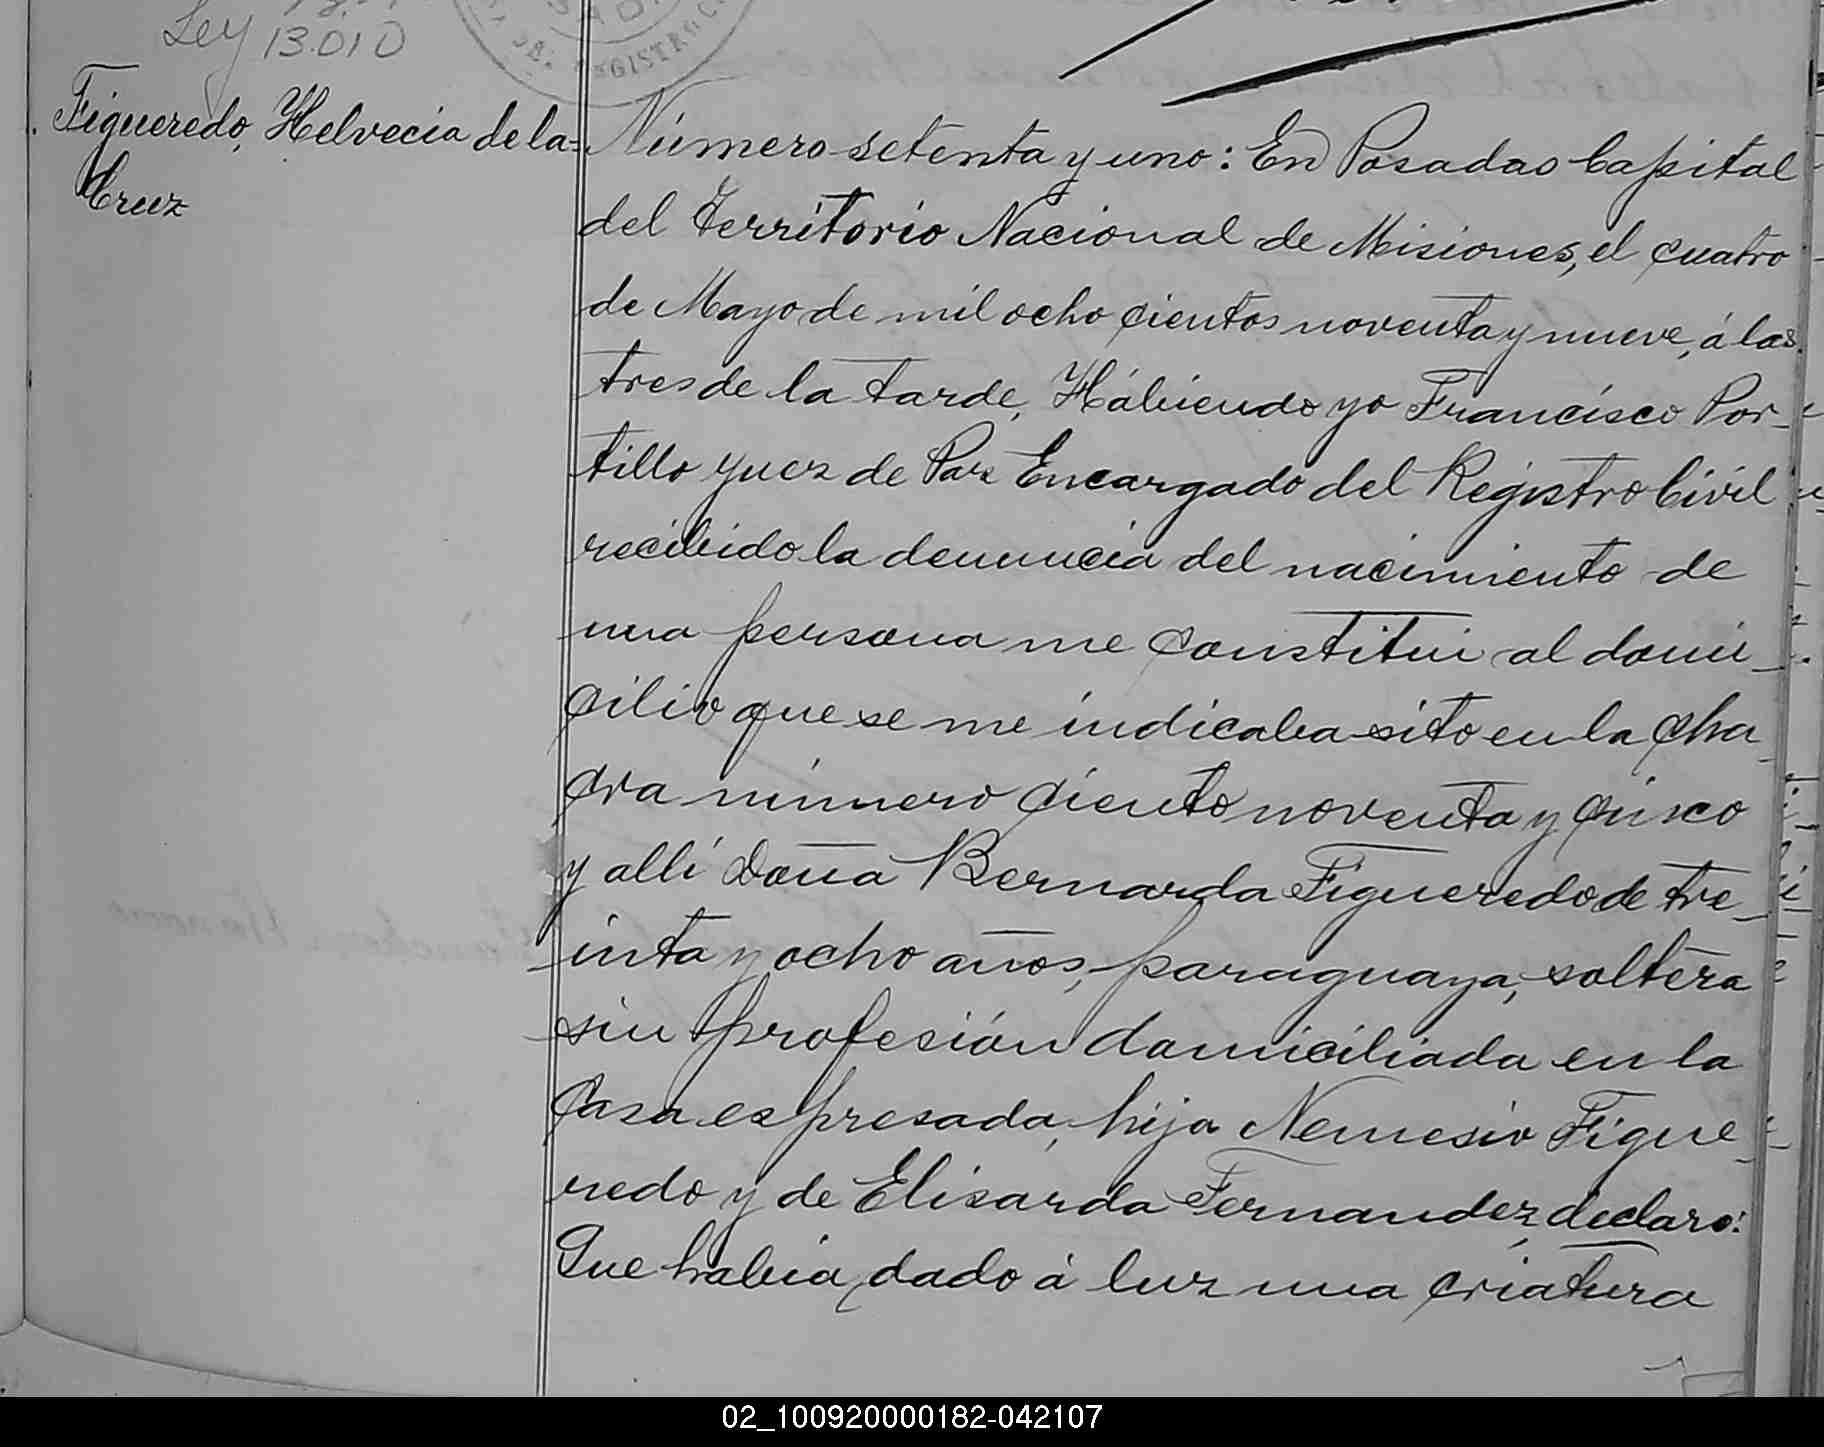 Ley 13.010
Figueredo, Helvecia de la=
Cruz
Número setenta y uno: En Posadas Capital
del Territorio Nacional de Misiones, el cuatro
de Mayo de mil ocho cientos noventa y nueve, á las
tres de la tarde, Habiendo yo Francisco Por_
tillo Juez de Paz Encargado del Registro Civil
recibido la denuncia del nacimiento de
una persona me constitui al domi_
cilio que se me indicaba sito en la cha_
cra número ciento noventa y cinco
y allí Doña Bernarda Figueredo de tre_
inta y ocho años, paraguaya, soltera
sin profesión domiciliada en la
casa espresada, hija Nemesio Figue_
redo y de Elisarda Fernandez, declaro:
Que había dado á luz una criatura
02_100920000182-042107